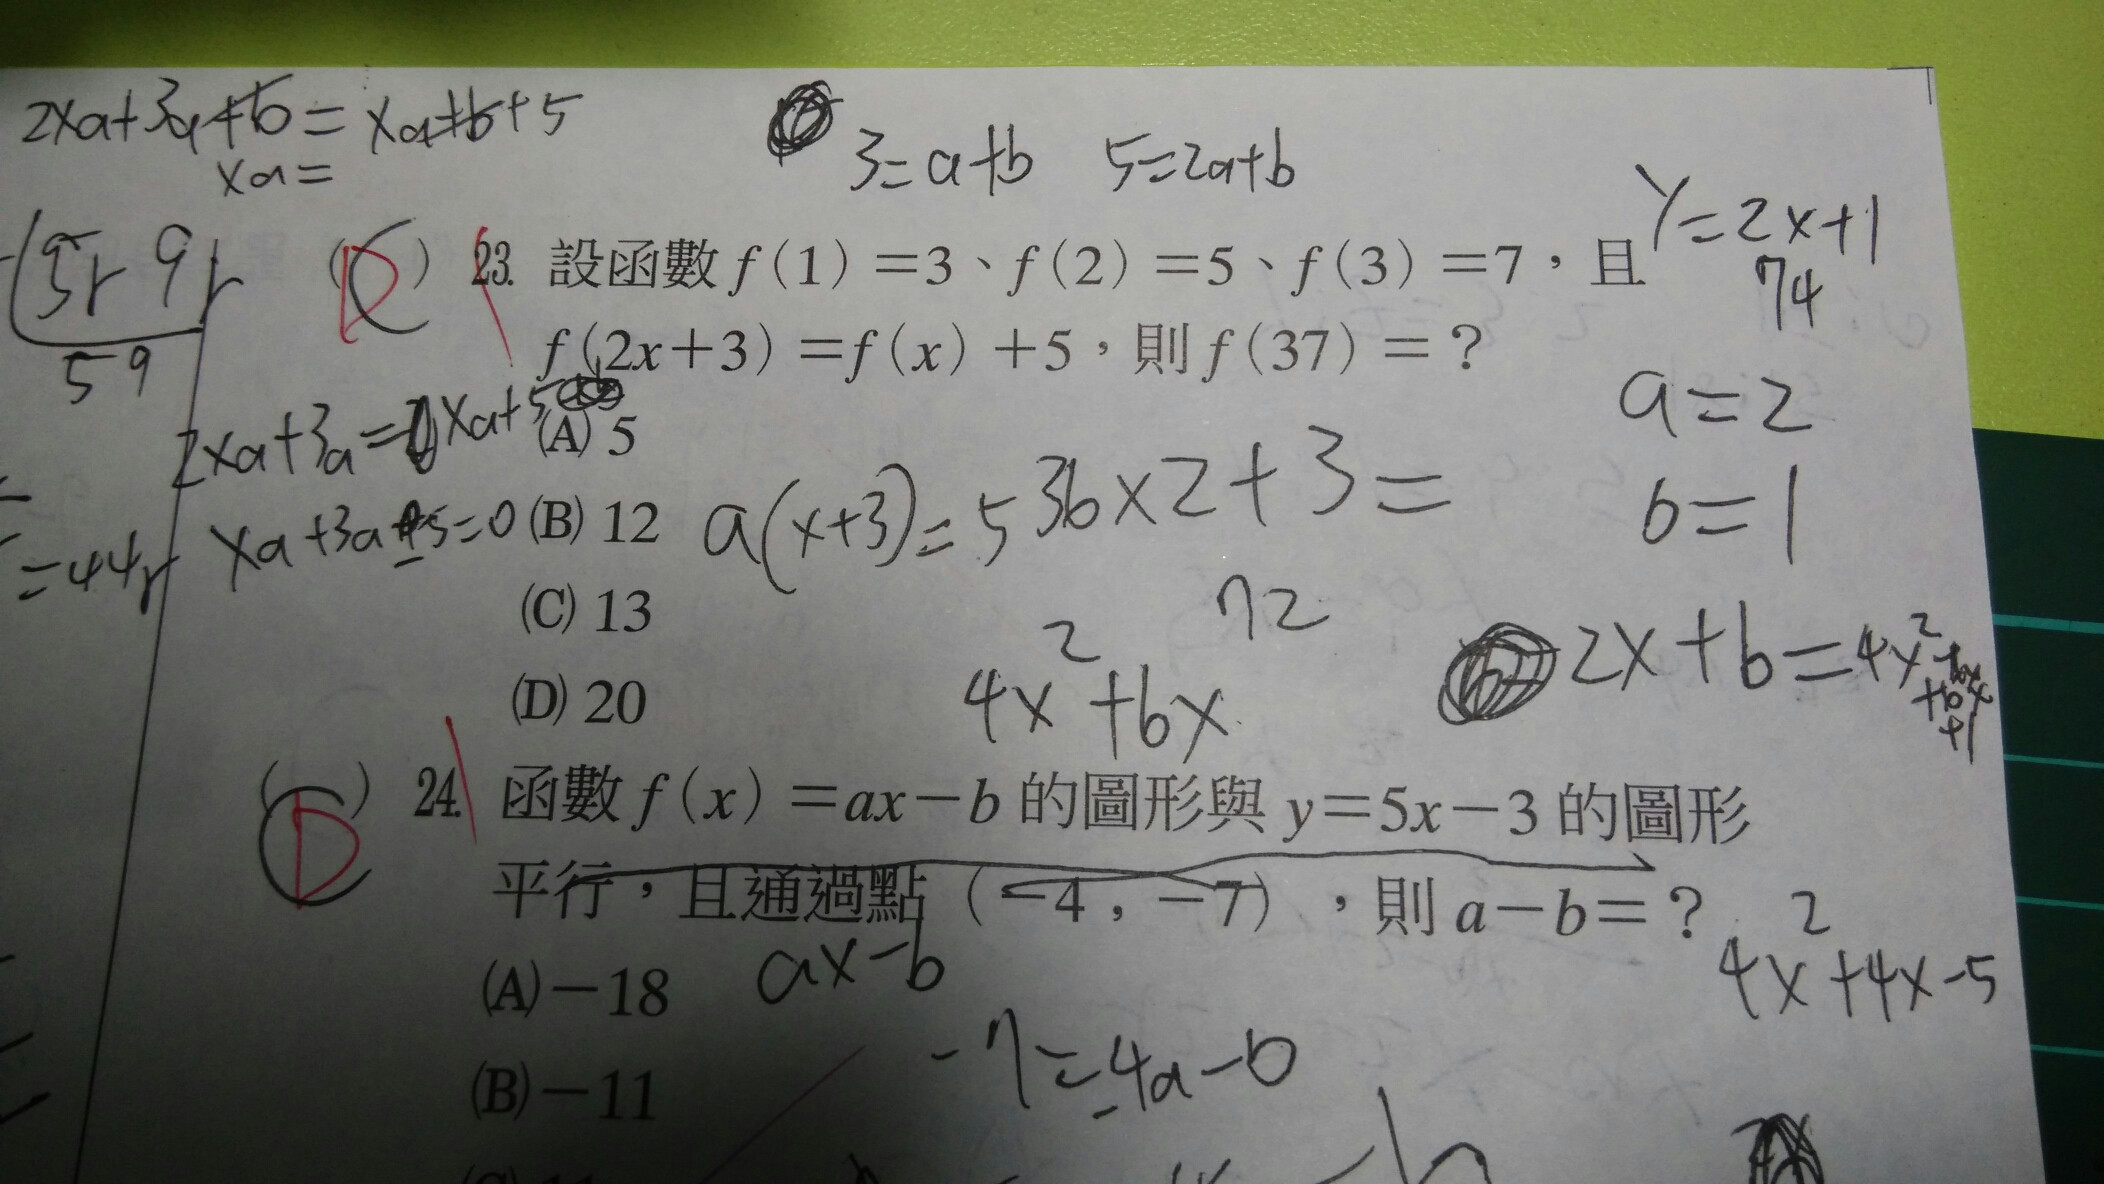 2xa+3a+b=xa+b+5
xa=
3=a+b 5=2a+b
y=2x+1
74
5r 9r
59
( D ) 23. 設函數 f(1)=3、f(2)=5、f(3)=7，且
f(2x+3)=f(x)+5，則 f(37)=？
a=2
b=1
2xa+3a=xa+5
(A) 5
xa+3a-5=0
(B) 12
a(x+3)=5
36x2+3=
72
=44r
(C) 13
(D) 20
4x²+6x
2x+b=4x²
( D ) 24. 函數 f(x)=ax−b 的圖形與 y=5x−3 的圖形
平行，且通過點（−4，−7），則 a−b=？
4x²+4x-5
(A) −18
ax-b
(B) −11
-7=-4a-b